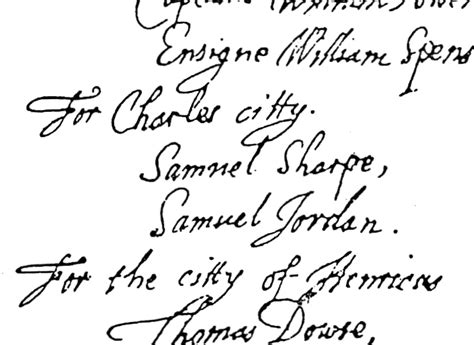 Ensigne William Spens
For Charles citty.
Samuel Sharpe,
Samuel Jordan.
For the citty of Henricus
Thomas Dowse,